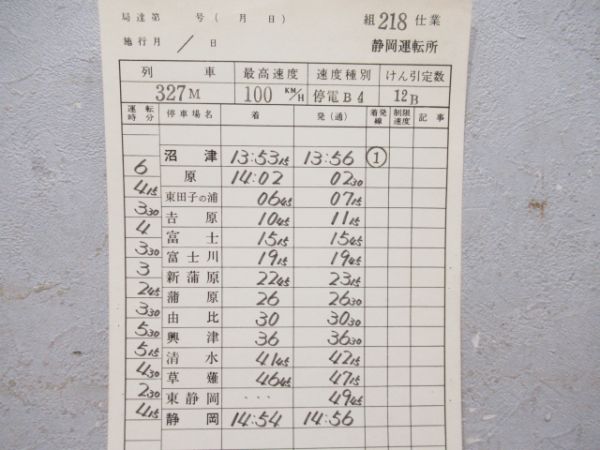 局達第 号( 月 日) 組 218 仕業
施行月 / 日 静岡運転所
列 車 最高速度 速度種別 けん引定数
327M 100 KM/H 停電B4 12B
運転時分 停車場名 着 発(通) 着発線 制限速度 記事
沼津 13:53 15 13:56 ①
6 原 14:02 02 30
4 15 東田子の浦 06 45 07 15
3 30 吉原 10 45 11 15
4 富士 15 15 15 45
3 30 富士川 19 15 19 45
3 新蒲原 22 45 23 15
2 45 蒲原 26 26 30
3 30 由比 30 30 30
5 30 興津 36 36 30
5 15 清水 41 45 42 15
4 30 草薙 46 45 47 15
2 30 東静岡 ・・・ 49 45
4 15 静岡 14:54 14:56